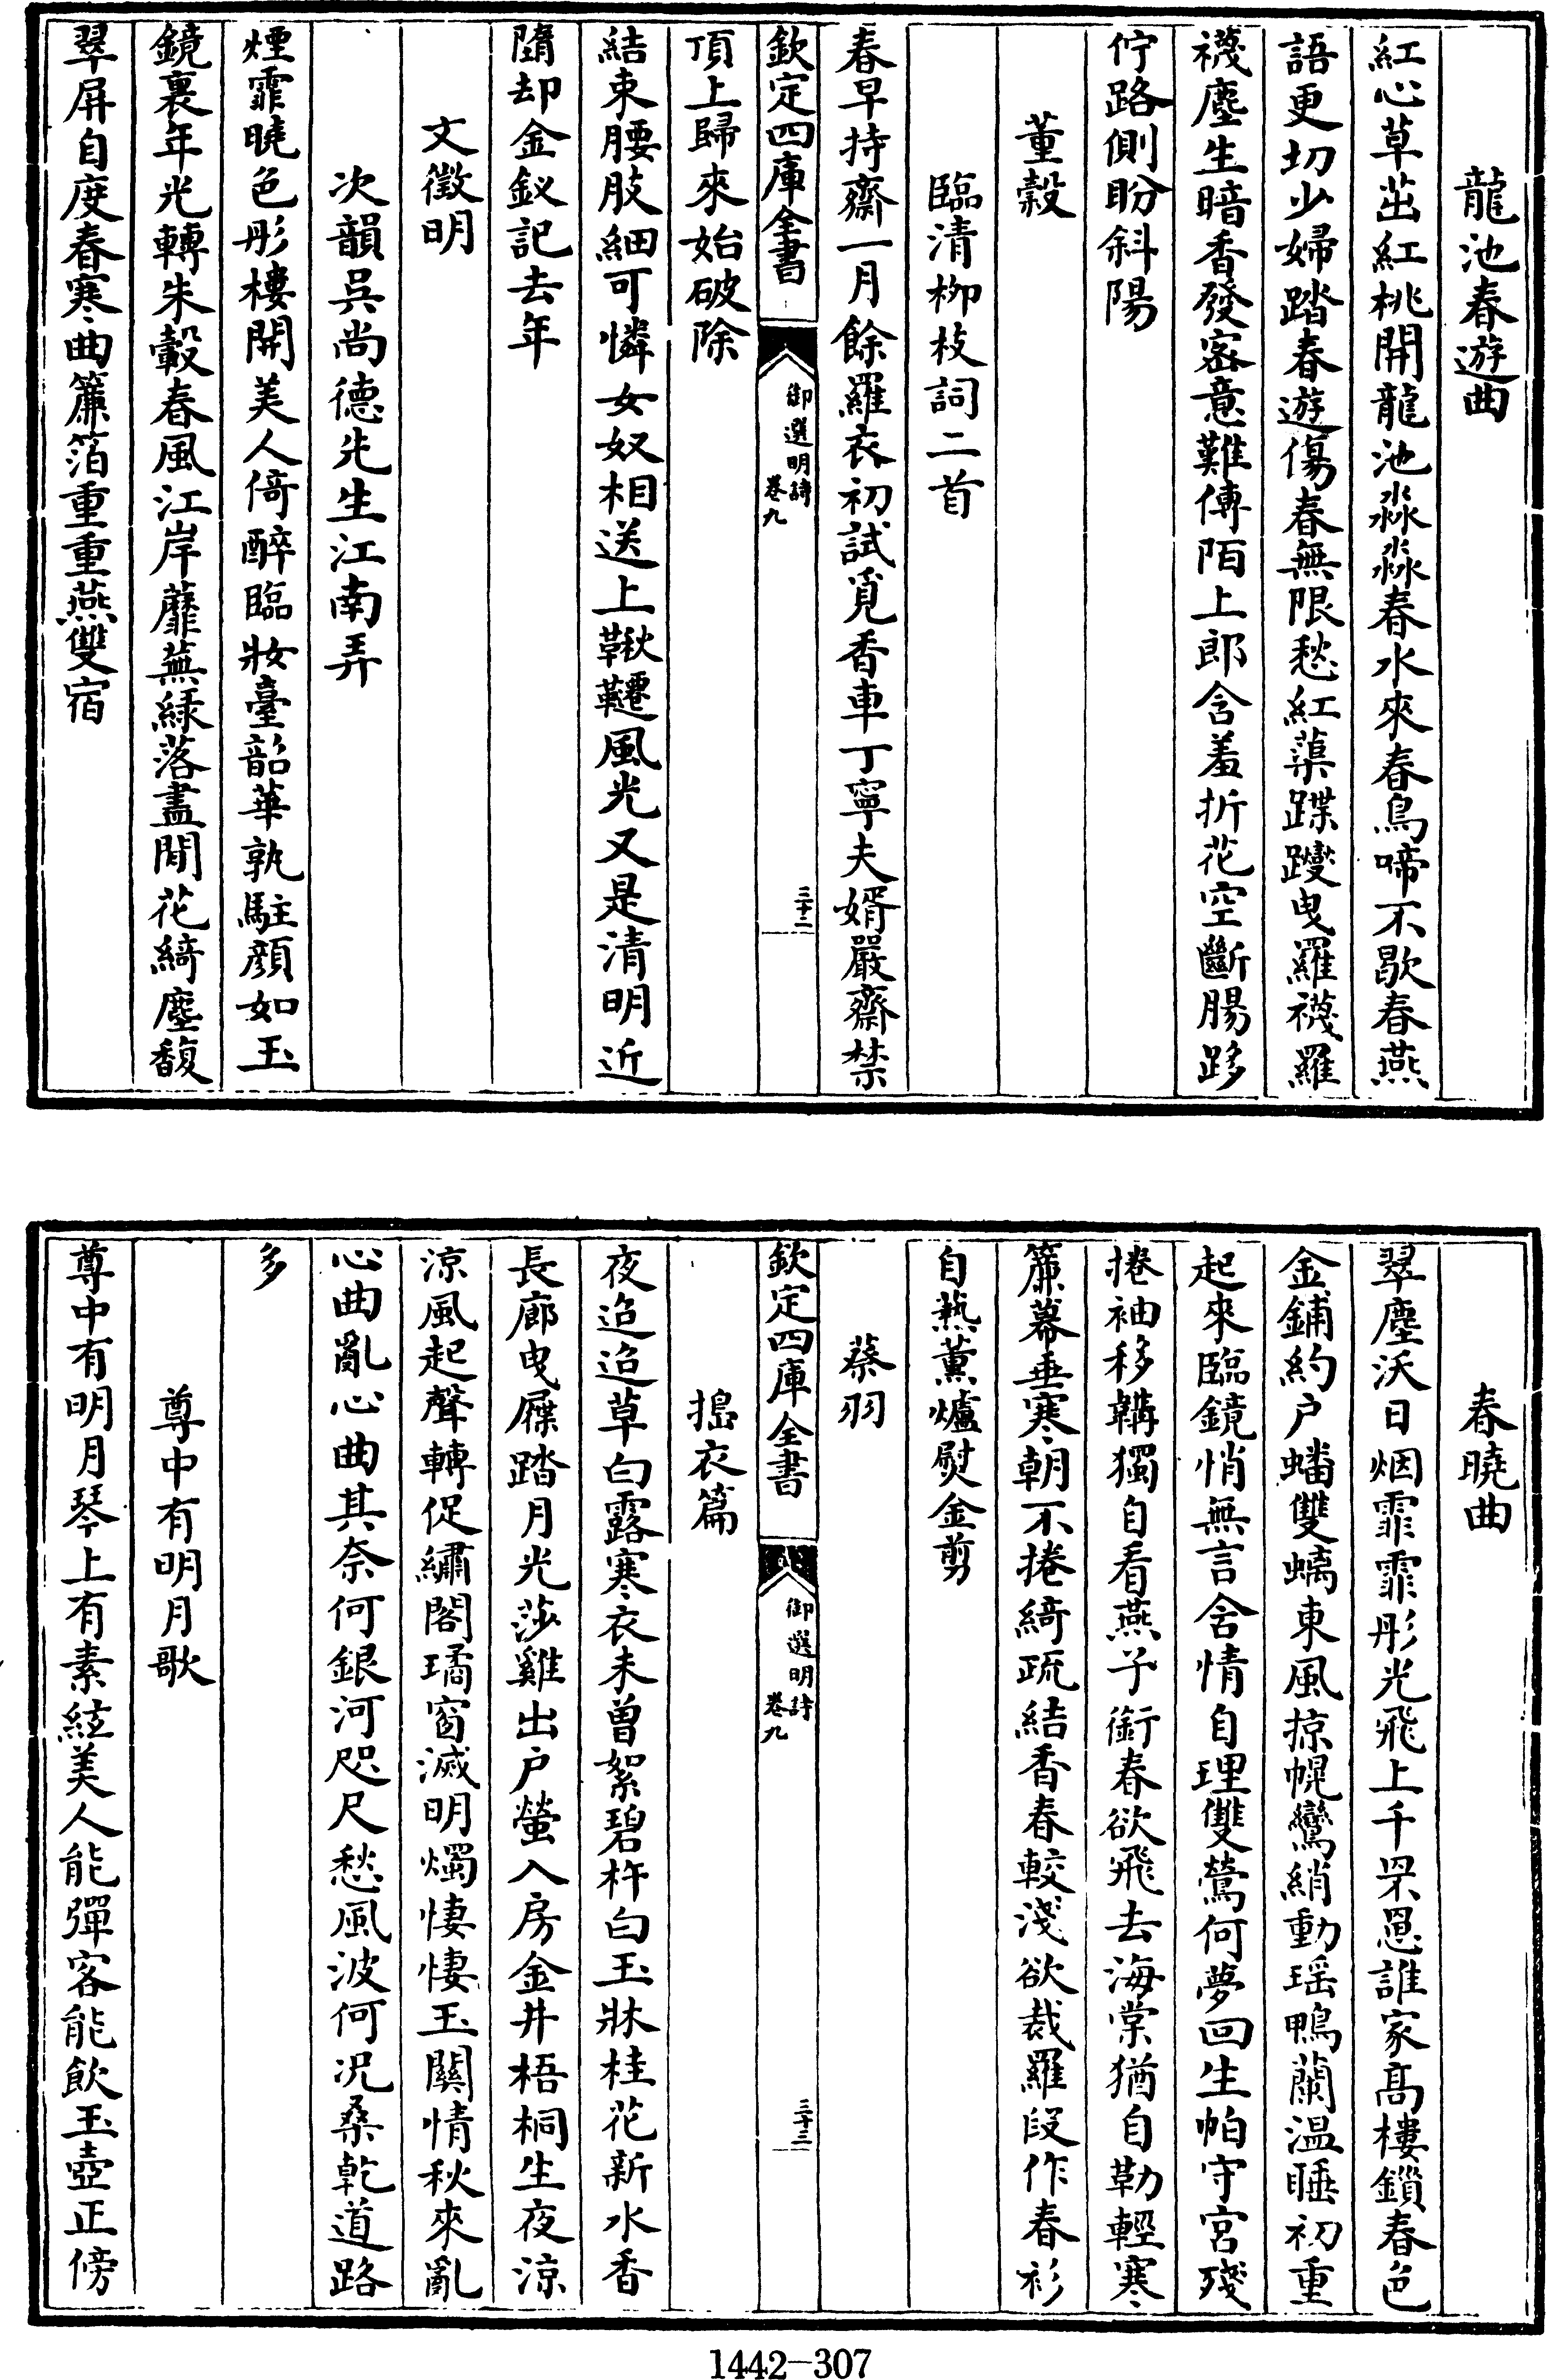 龍池春遊曲
紅心草茁紅桃開龍池淼淼春水來春鳥啼不歇春燕
語更切少婦踏春遊傷春無限愁紅蕖蹀躞曳羅襪羅
襪塵生暗香發密意難傳陌上郎含羞折花空斷腸跢
佇路側盼斜陽
董穀
臨清柳枝詞二首
春早持齋一月餘羅衣初試覓香車丁寧夫婿嚴齋禁
欽定四庫全書
御選明詩
卷九
三十二
頂上歸來始破除
結束腰肢細可憐女奴相送上鞦韆風光又是清明近
隋却金釵記去年
文徵明
次韻吳尚德先生江南弄
煙霏曉色彤樓開美人倚醉臨妝臺韶華孰駐顏如玉
鏡裏年光轉朱轂春風江岸蘼蕪緑落盡閒花綺塵馥
翠屏自度春寒曲簾箔重重燕雙宿
春曉曲
翠塵沃日烟霏霏彤光飛上千罘罳誰家髙樓鎖春色
金鋪約户蟠雙螭東風掠幌鸞綃動瑶鴨蘭温睡初重
起來臨鏡悄無言含情自理雙鶯何夢回生帕守宮殘
捲袖移韝獨自看燕子銜春欲飛去海棠猶自勒輕寒
簾幕垂寒朝不捲綺疏結香春較淺欲裁羅段作春衫
自爇薰爐熨金剪
蔡羽
擣衣篇
欽定四庫全書
御選明詩
卷九
三十三
夜迢迢草白露寒衣未曾絮碧杵白玉牀桂花新水香
長廊曳屧踏月光莎雞出户螢入房金井梧桐生夜涼
涼風起聲轉促繡閣璚窗滅明燭悽悽玉關情秋來亂
心曲亂心曲其奈何銀河咫尺愁風波何况桑乾道路
多
尊中有明月歌
尊中有明月琴上有素絃美人能彈客能飲玉壺正傍
1442-307